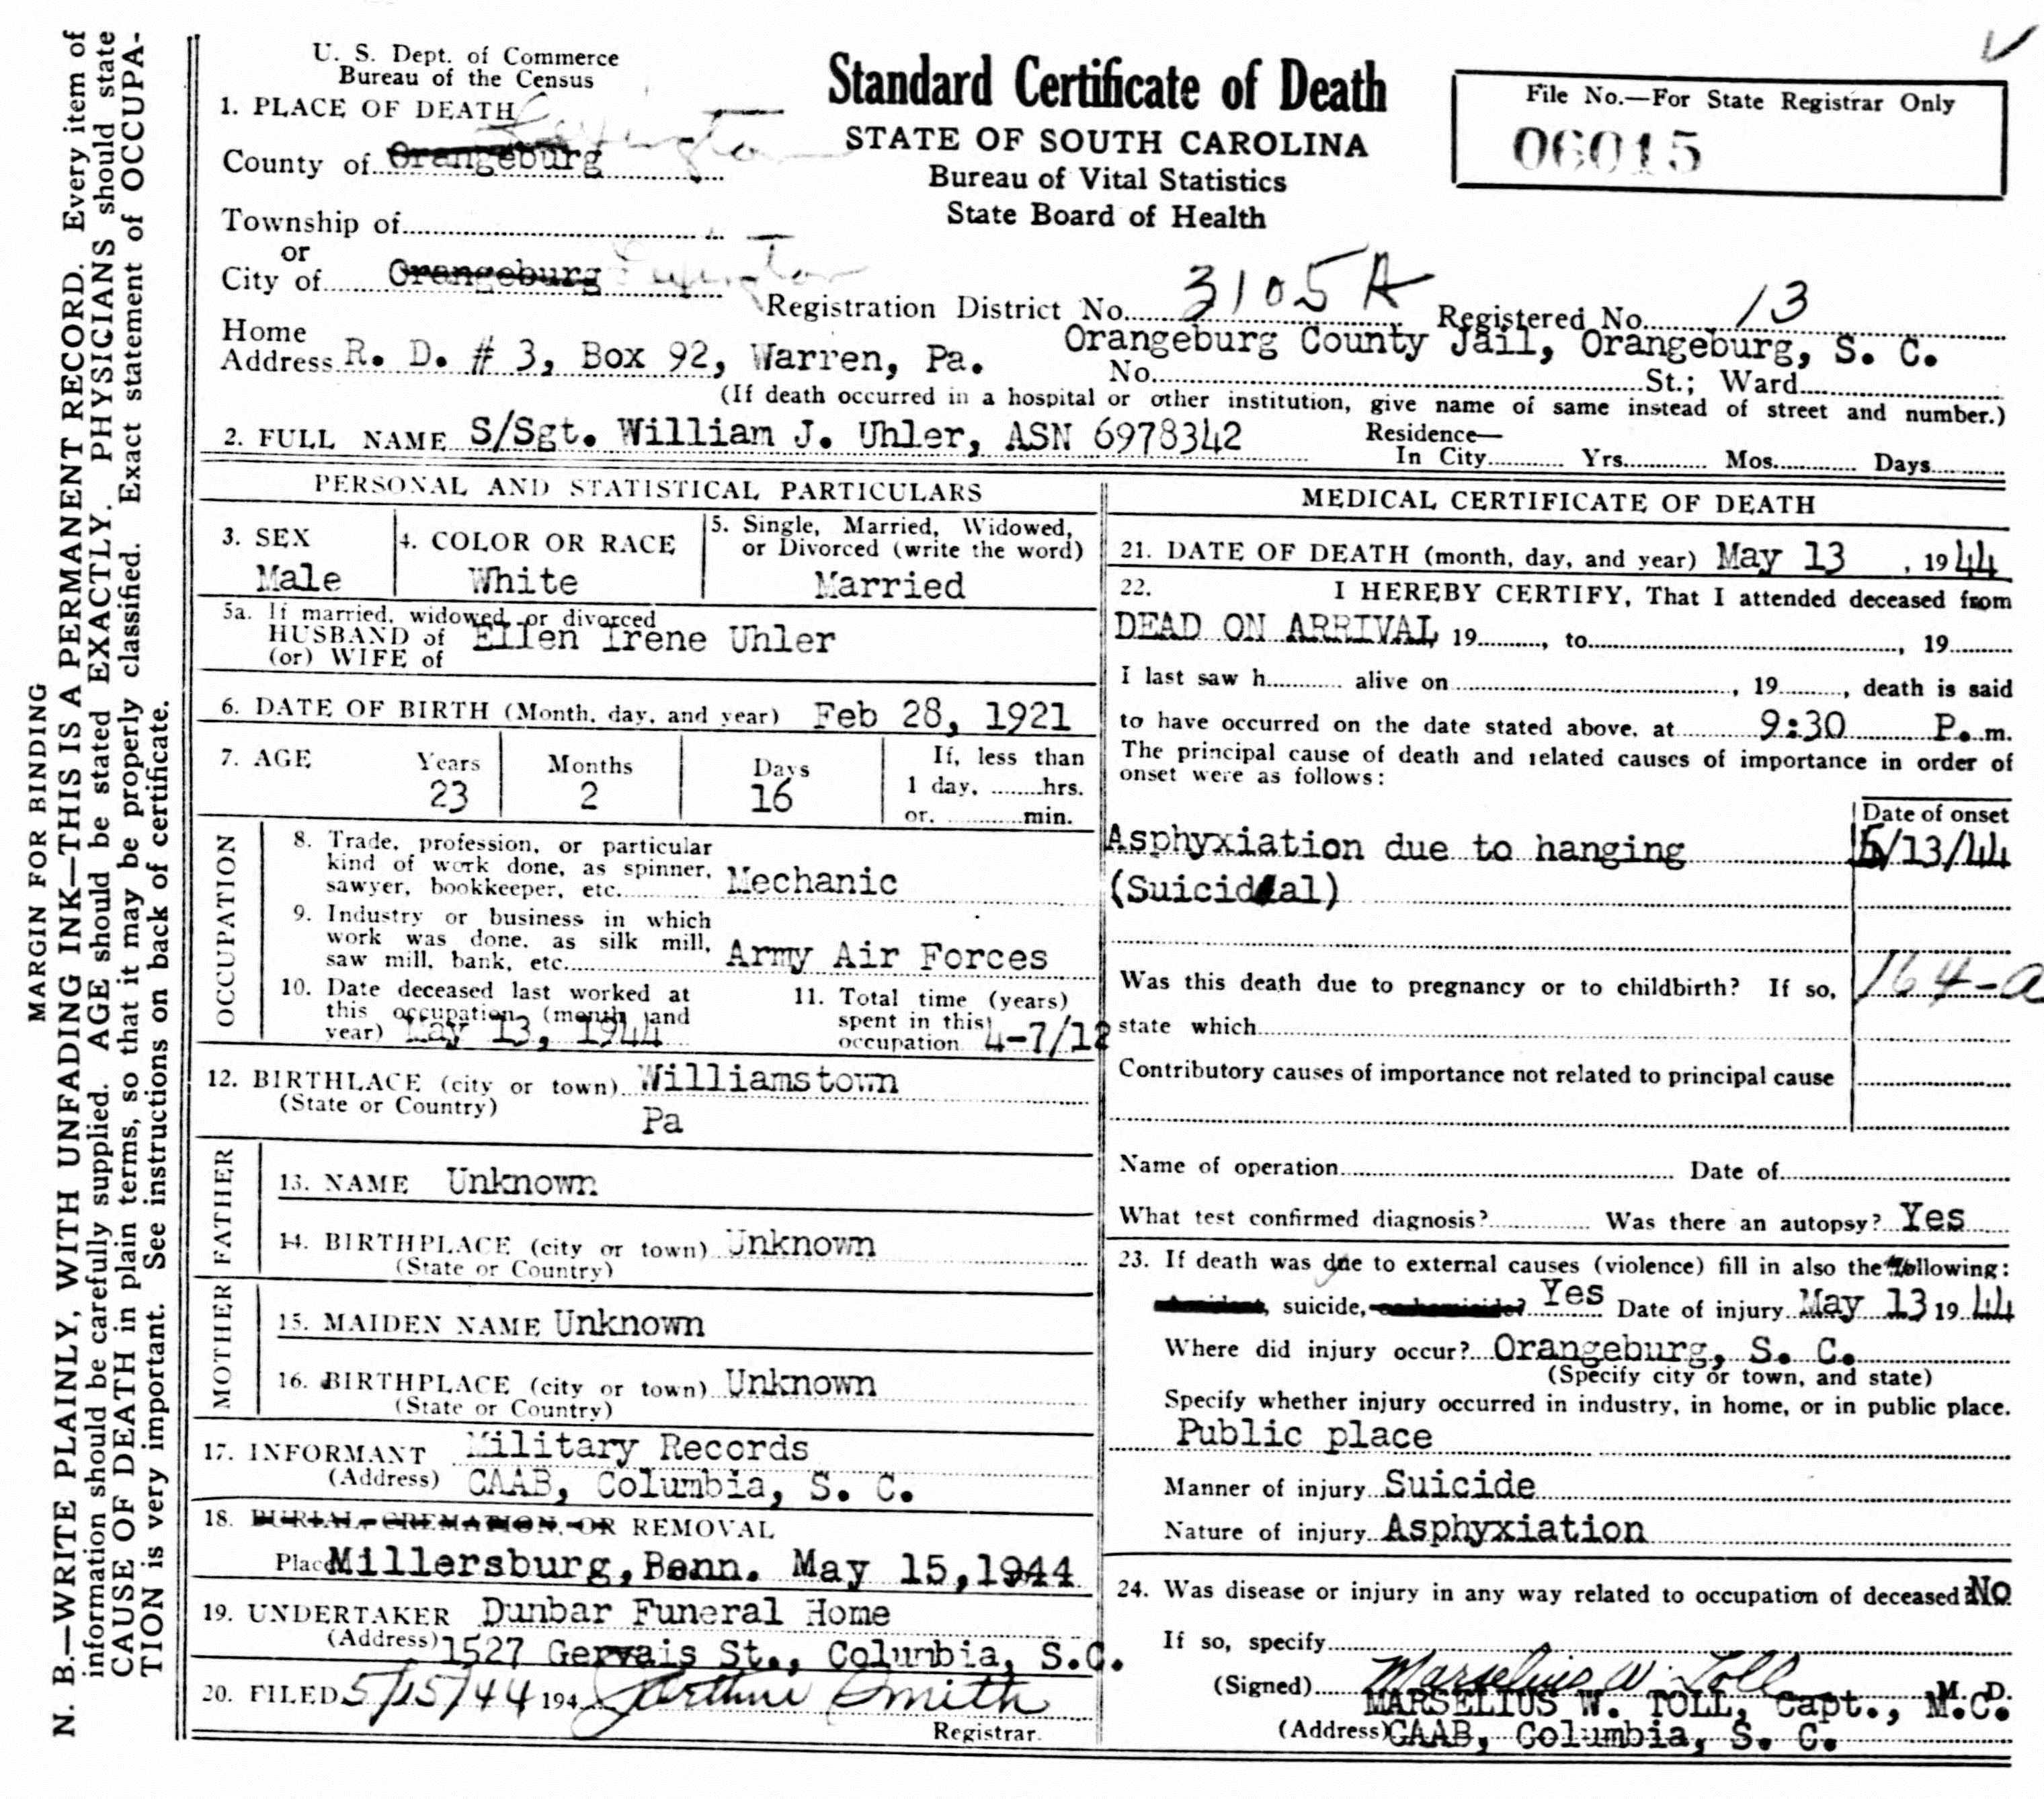 U. S. Dept. of Commerce
Bureau of the Census
Standard Certificate of Death
STATE OF SOUTH CAROLINA
Bureau of Vital Statistics
State Board of Health
File No.—For State Registrar Only
06015
1. PLACE OF DEATH
County of Orangeburg Lexington
Township of
or
City of Orangeburg Lexington
Registration District No. 3105 A Registered No. 13
Home
Address R. D. # 3, Box 92, Warren, Pa. Orangeburg County Jail, Orangeburg, S. C.
No. St.; Ward
(If death occurred in a hospital or other institution, give name of same instead of street and number.)
2. FULL NAME S/Sgt. William J. Uhler, ASN 6978342
Residence—
In City Yrs. Mos. Days
PERSONAL AND STATISTICAL PARTICULARS
3. SEX
Male
4. COLOR OR RACE
White
5. Single, Married, Widowed,
or Divorced (write the word)
Married
5a. If married, widowed or divorced
HUSBAND of
(or) WIFE of
Ellen Irene Uhler
6. DATE OF BIRTH (Month, day, and year) Feb 28, 1921
7. AGE Years Months Days
23 2 16
If, less than
1 day, hrs.
or, min.
OCCUPATION
8. Trade, profession, or particular
kind of work done, as spinner,
sawyer, bookkeeper, etc. Mechanic
9. Industry or business in which
work was done, as silk mill,
saw mill, bank, etc. Army Air Forces
10. Date deceased last worked at
this occupation (month and
year) May 13, 1944
11. Total time (years)
spent in this
occupation 4-7/12
12. BIRTHLACE (city or town) Williamstown
(State or Country) Pa
FATHER
13. NAME Unknown
14. BIRTHPLACE (city or town) Unknown
(State or Country)
MOTHER
15. MAIDEN NAME Unknown
16. BIRTHPLACE (city or town) Unknown
(State or Country)
17. INFORMANT Military Records
(Address) CAAB, Columbia, S. C.
18. BURIAL, CREMATION, OR REMOVAL
Place Millersburg, Penn. May 15, 1944
19. UNDERTAKER Dunbar Funeral Home
(Address) 1527 Gervais St., Columbia, S.C.
20. FILED 5/15/44 194 Arthur Smith
Registrar.
MEDICAL CERTIFICATE OF DEATH
21. DATE OF DEATH (month, day, and year) May 13, 1944
22. I HEREBY CERTIFY, That I attended deceased from
DEAD ON ARRIVAL, 19, to, 19
I last saw h alive on, 19, death is said
to have occurred on the date stated above, at 9:30 P. m.
The principal cause of death and related causes of importance in order of
onset were as follows:
Date of onset
Asphyxiation due to hanging 5/13/44
(Suicidal)
Was this death due to pregnancy or to childbirth? If so, 164-a
state which
Contributory causes of importance not related to principal cause
Name of operation Date of
What test confirmed diagnosis? Was there an autopsy? Yes
23. If death was due to external causes (violence) fill in also the following:
Accident, suicide, or homicide? Yes Date of injury May 13 1944
Where did injury occur? Orangeburg, S. C.
(Specify city or town, and state)
Specify whether injury occurred in industry, in home, or in public place.
Public place
Manner of injury Suicide
Nature of injury Asphyxiation
24. Was disease or injury in any way related to occupation of deceased? No
If so, specify
(Signed) Marselius W. Toll M. D.
MARSELIUS W. TOLL, Capt., M.C.
(Address) CAAB, Columbia, S. C.
MARGIN FOR BINDING
N. B.—WRITE PLAINLY, WITH UNFADING INK—THIS IS A PERMANENT RECORD. Every item of
information should be carefully supplied. AGE should be stated EXACTLY. PHYSICIANS should state
CAUSE OF DEATH in plain terms, so that it may be properly classified. Exact statement of OCCUPA-
TION is very important. See instructions on back of certificate.